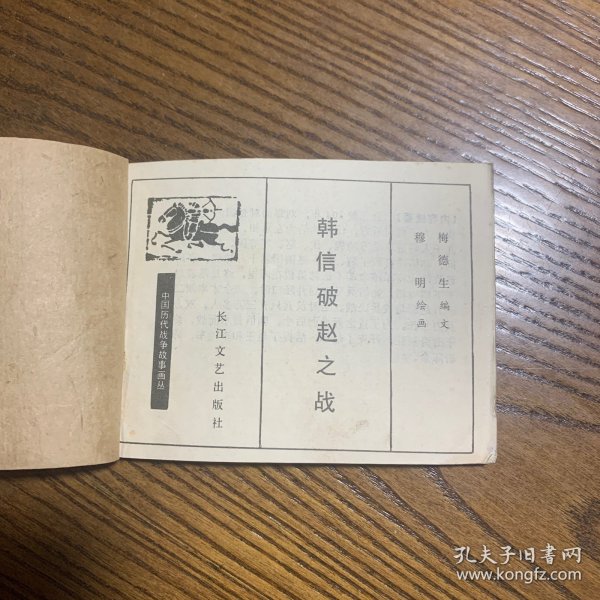 梅德生 编文
穆明 绘画
韩信破赵之战
长江文艺出版社
中国历代战争故事画丛
孔夫子旧书网
www.kongfz.com